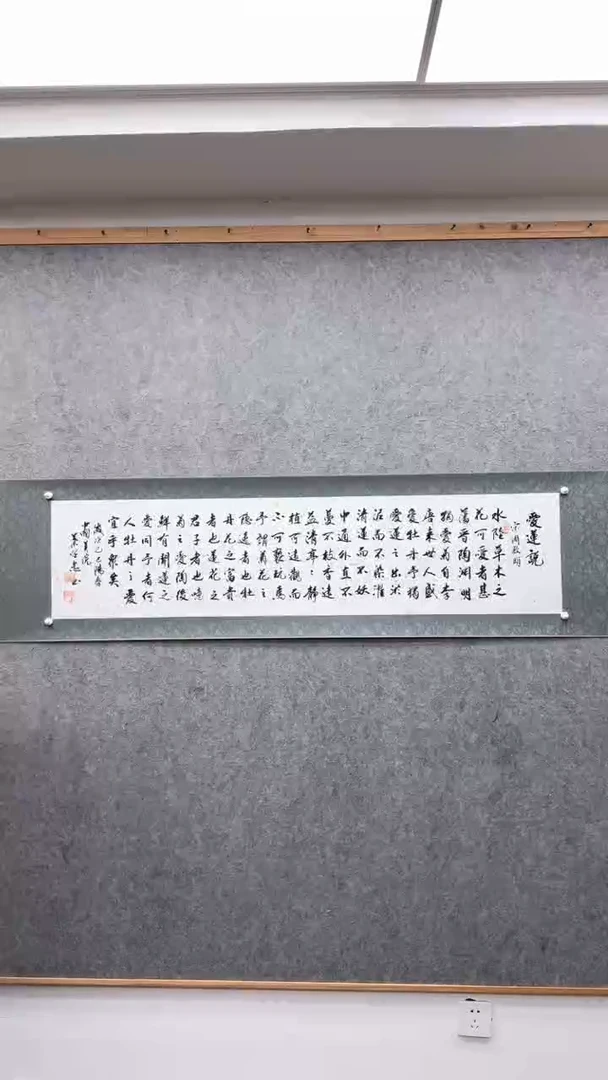 愛蓮說
宋周敦頤
水陸草木之
花可愛者甚
蕃晉陶淵明
獨愛菊自李
唐來世人盛
愛牡丹予獨
愛蓮之出淤
泥而不染濯
清蓮而不妖
中通外直不
蔓不枝香遠
益清亭:靜
植可遠觀而
不可褻玩焉
予謂菊花之
隱逸者也牡
丹花之富貴
者也蓮花之
君子者也噫
菊之愛陶後
鮮有聞蓮之
愛同予者何
人牡丹之愛
宜乎衆矣
歲次乙巳